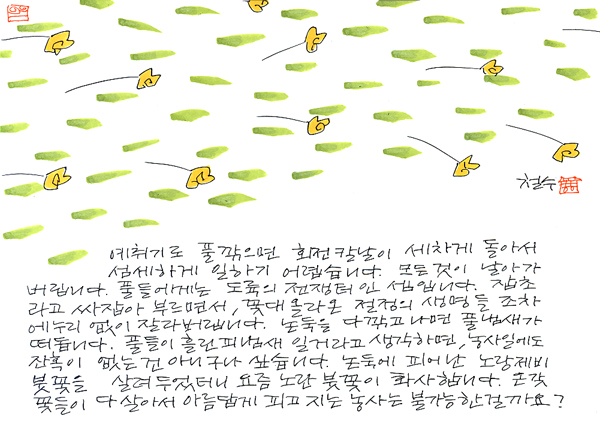 철수
예취기로 풀 깎으면 회전칼날이 세차게 돌아서
섬세하게 일하기 어렵습니다. 모든것이 날아가
버립니다. 풀들에게는 도륙의 전쟁터인 셈입니다. 잡초
라고 싸잡아 부르면서, 꽃대 올라온 절정의 생명들 조차
에누리 없이 잘라버립니다. 논둑을 다 깎고나면 풀냄새가
떠돕니다. 풀들이 흘린 피냄새 일거라고 생각하면, 농사일에도
잔혹이 없는건 아니구나 싶습니다. 논둑에 피어난 노랑제비
붓꽃을 살려두었더니 요즘 노란 붓꽃이 화사합니다. 온갖
꽃들이 다 살아서 아름답게 피고 지는 농사는 불가능한걸까요?